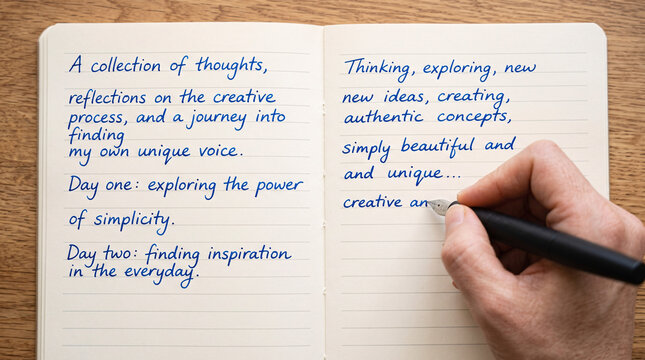 A collection of thoughts,
reflections on the creative
process, and a journey into
finding
my own unique voice.
Day one: exploring the power
of simplicity.
Day two: finding inspiration
in the everyday.
Thinking, exploring, new
new ideas, creating,
authentic concepts,
simply beautiful and
and unique...
creative an